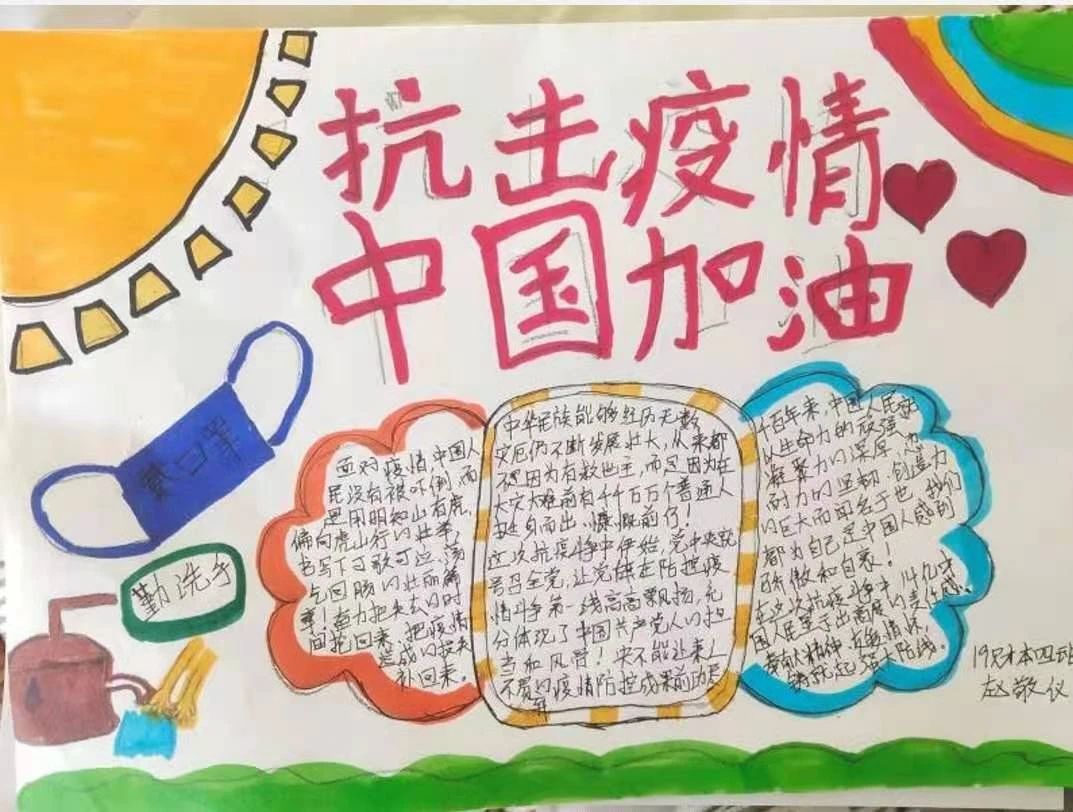 抗击疫情
中国加油
戴口罩
勤洗手
面对疫情,中国人
民没有被吓倒,而
是用明知山有虎,
偏向虎山行的壮举,
书写下可歌可泣、荡
气回肠的壮丽篇
章!奋力把失去的时
间抢回来,把疫情
造成的损失
补回来。
中华民族能够经历无数
灾厄仍不断发展壮大,从来都
不是因为有救世主,而是因为在
大灾大难前有千千万万个普通人
挺身而出、慷慨前行!
这次抗疫斗争中伊始,党中央就
号召全党,让党旗在防控疫
情斗争第一线高高飘扬,充
分体现了中国共产党人的担
当和风骨!决不能让来之
不易的疫情防控成果前功尽
弃
千百年来,中国人民就
以生命力的顽强、
凝聚力的深厚、
耐力的坚韧、创造力
的巨大而闻名于世,我们
都为自己是中国人感到
骄傲和自豪!
在这次抗疫斗争中,14亿中
国人民显示出高度的责任意识、
奉献精神、友爱情怀,
铸就起强大防线。
19
本四班
赵敬仪